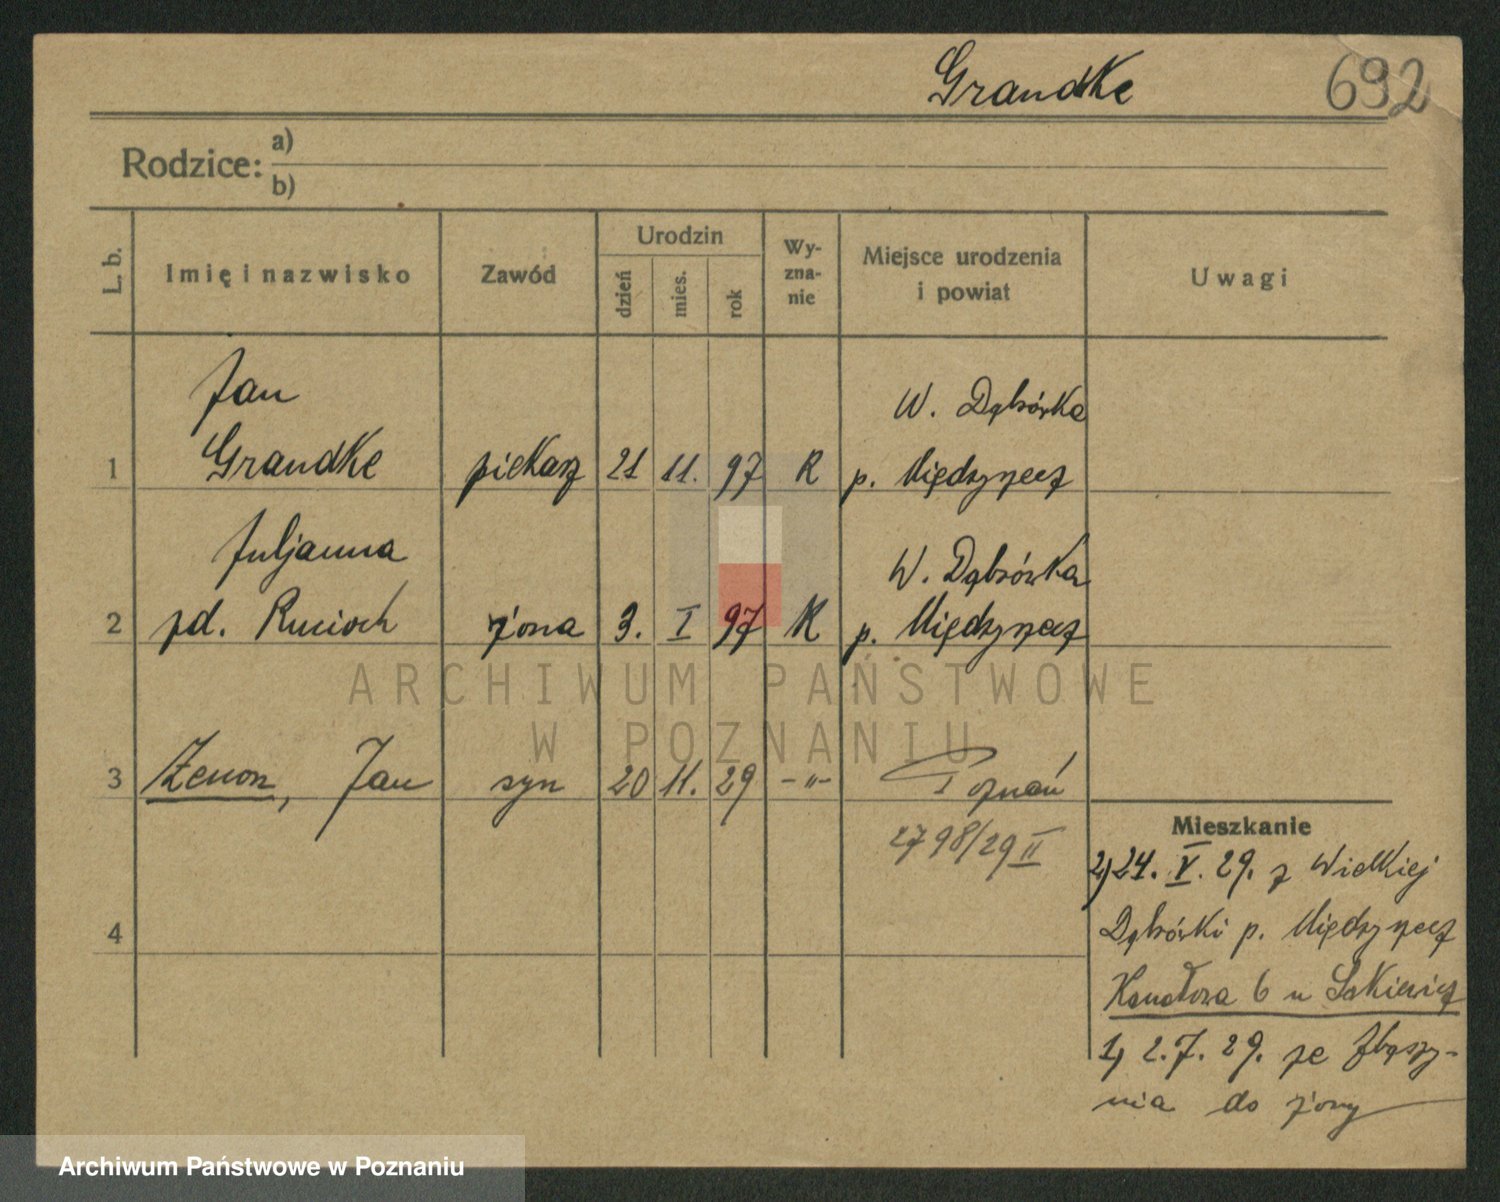 Grandke
692
Rodzice:
a)
b)
L. b.
Imię i nazwisko
Zawód
Urodzin
dzień
mies.
rok
Wy-
zna-
nie
Miejsce urodzenia
i powiat
Uwagi
Jan
W. Dąbrówka
1 Grandke piekarz 21 11. 97 R p. Międzyrzecz
Juljanna
W. Dąbrówka
2 zd. Rucioch żona 3. I 97 K p. Międzyrzecz
ARCHIWUM PAŃSTWOWE
W POZNANIU
3 Zenon, Jan syn 20 11. 29 -"- Poznań
2798/29 II
4
Mieszkanie
2) 24. V. 29. z Wielkiej
Dąbrówki p. Międzyrzecz
Kanałowa 6 u
1) 2. 7. 29. ze Zbąszy-
nia do żony
Archiwum Państwowe w Poznaniu